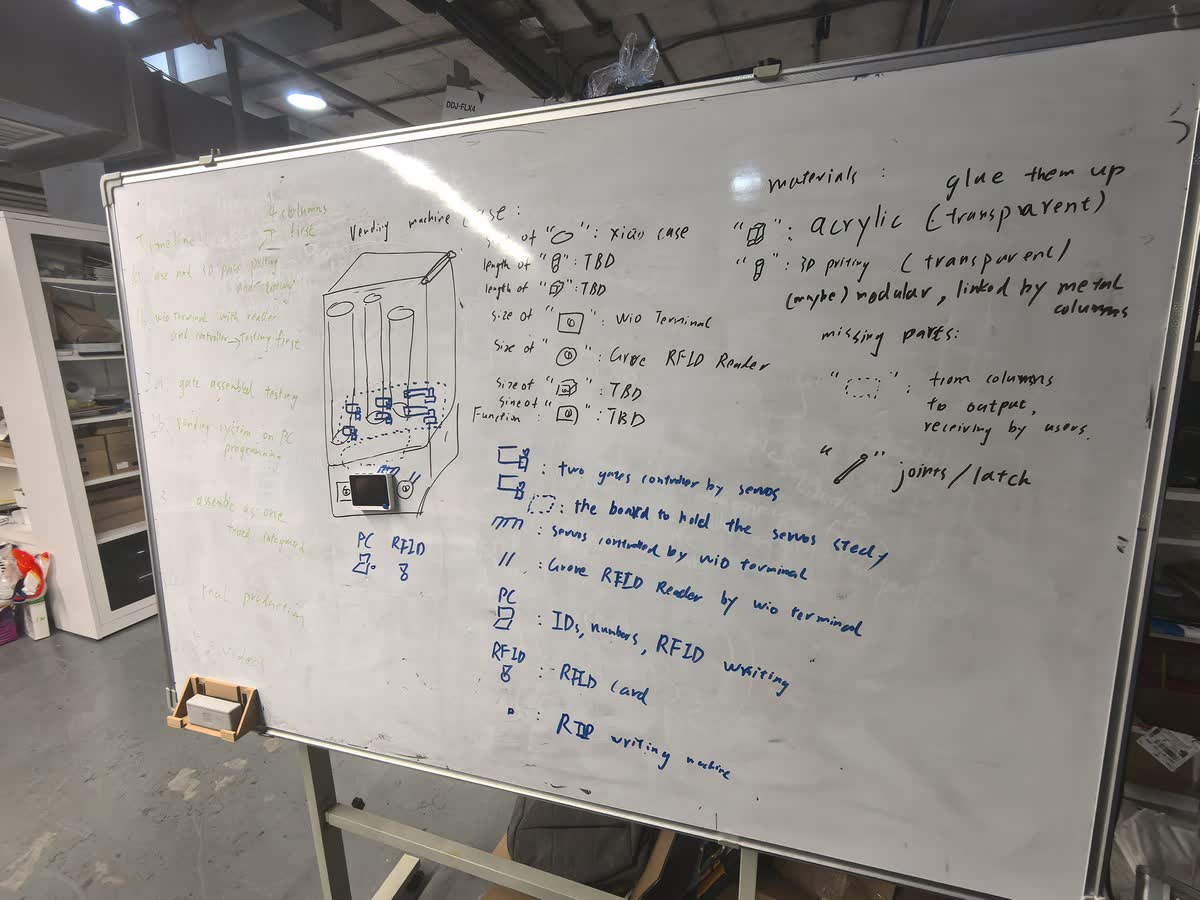 DDJ-FLX4
4 columns
first
Timeline
wio terminal with reader
and controller → testing first
gate assembled testing
Vending system on PC
programming
assemble as one
real production
Vending machine case:
size of "": xiao case
length of "": TBD
length of "": TBD
size of "": Wio Terminal
size of "": Grove RFID Reader
size of "": TBD
size of
Function "": TBD
: two gates controller by servos
: the board to hold the servos
: servos controlled by wio terminal
// : Grove RFID Reader by wio terminal
PC
: IDs, numbers, RFID writing
RFID
: RFID Card
: writing machine
PC RFID
materials: glue them up
"": acrylic (transparent)
"": 3D priting (transparent)
(maybe) modular, linked by metal
columns
missing parts:
"": from columns
to output,
receiving by users.
"" joints/latch